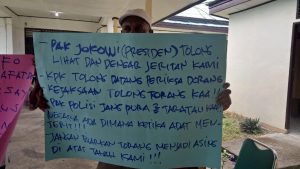 - PAK JOKOWI (PRESIDEN) TOLONG
LIHAT DAN DENGAR JERITAN KAMI
- KPK TOLONG DATANG PERIKSA DORANG
KEJAKSAAN TOLONG TORANG KAA!!
PAK POLISI JANG PURA2 TARATAU KAH
DORANG ADA DIMANA KETIKA ADAT MEN-
JERIT!!!
JANGAN BIARKAN TORANG MENJADI ASING
DI ATAS TANAH KAMI!!!